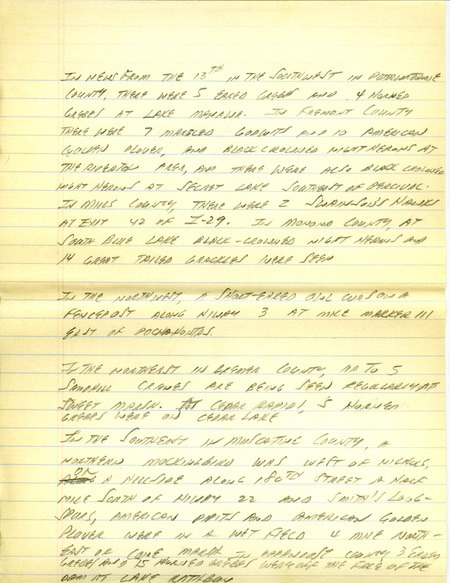 IN NEWS FROM THE 13TH IN THE SOUTHWEST IN POTTAWATTAMIE
COUNTY, THERE WERE 5 EARED GREBES AND 4 HORNED
GREBES AT LAKE MANAWA. IN FREMONT COUNTY
THERE WERE 7 MARBLED GODWITS AND 10 AMERICAN
GOLDEN PLOVER, AND BLACK CROWNED NIGHT HERONS AT
THE RIVERTON AREA, AND THERE WERE ALSO BLACK CROWNED
NIGHT HERONS AT SECRET LAKE SOUTHEAST OF PERCIVAL.
IN MILLS COUNTY, THERE WERE 2 SWAINSON'S HAWKS
AT EXIT 42 OF I-29. IN MONONA COUNTY, AT
SOUTH BLUE LAKE BLACK-CROWNED NIGHT HERONS AND
14 GREAT TAILED GRACKLES WERE SEEN
IN THE NORTHWEST, A SHORT-EARED OWL WAS ON A
FENCEPOST ALONG HIWAY 3 AT MILE MARKER 111
EAST OF POCAHONTAS.
IN THE NORTHEAST IN BREMER COUNTY, UP TO 5
SANDHILL CRANES ARE BEING SEEN REGULARLY AT
SWEET MARSH. AT CEDAR RAPIDS, 5 HORNED
GREBES WERE ON CEDAR LAKE
IN THE SOUTHEAST IN MUSCATINE COUNTY, A
NORTHERN MOCKINGBIRD WAS WEST OF NICHOLS,
ON A HILLSIDE ALONG 180TH STREET A HALF
MILE SOUTH OF HIWAY 22 AND SMITH'S LONG-
SPURS, AMERICAN PIPITS AND AMERICAN GOLDEN
PLOVER WERE IN A WET FIELD 4 MILE NORTH-
EAST OF CONE MARSH. IN APPANOOSE COUNTY 3 EARED
GREBES AND 15 HORNED GREBES WERE OFF THE FACE OF THE
DAM AT LAKE RATHBUN